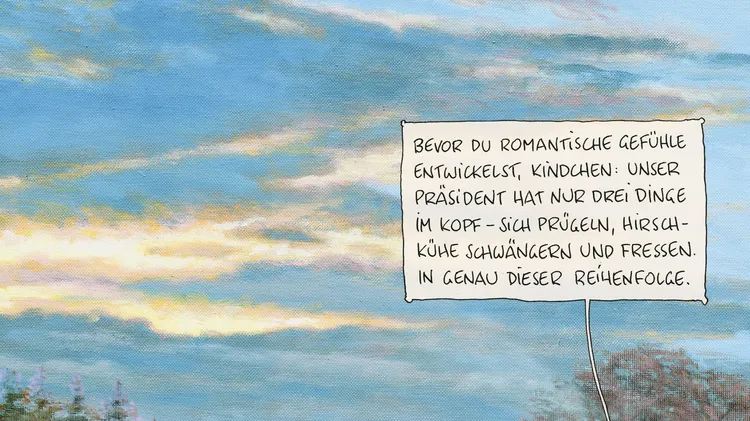 BEVOR DU ROMANTISCHE GEFÜHLE
ENTWICKELST, KINDCHEN: UNSER
PRÄSIDENT HAT NUR DREI DINGE
IM KOPF – SICH PRÜGELN, HIRSCH-
KÜHE SCHWÄNGERN UND FRESSEN.
IN GENAU DIESER REIHENFOLGE.